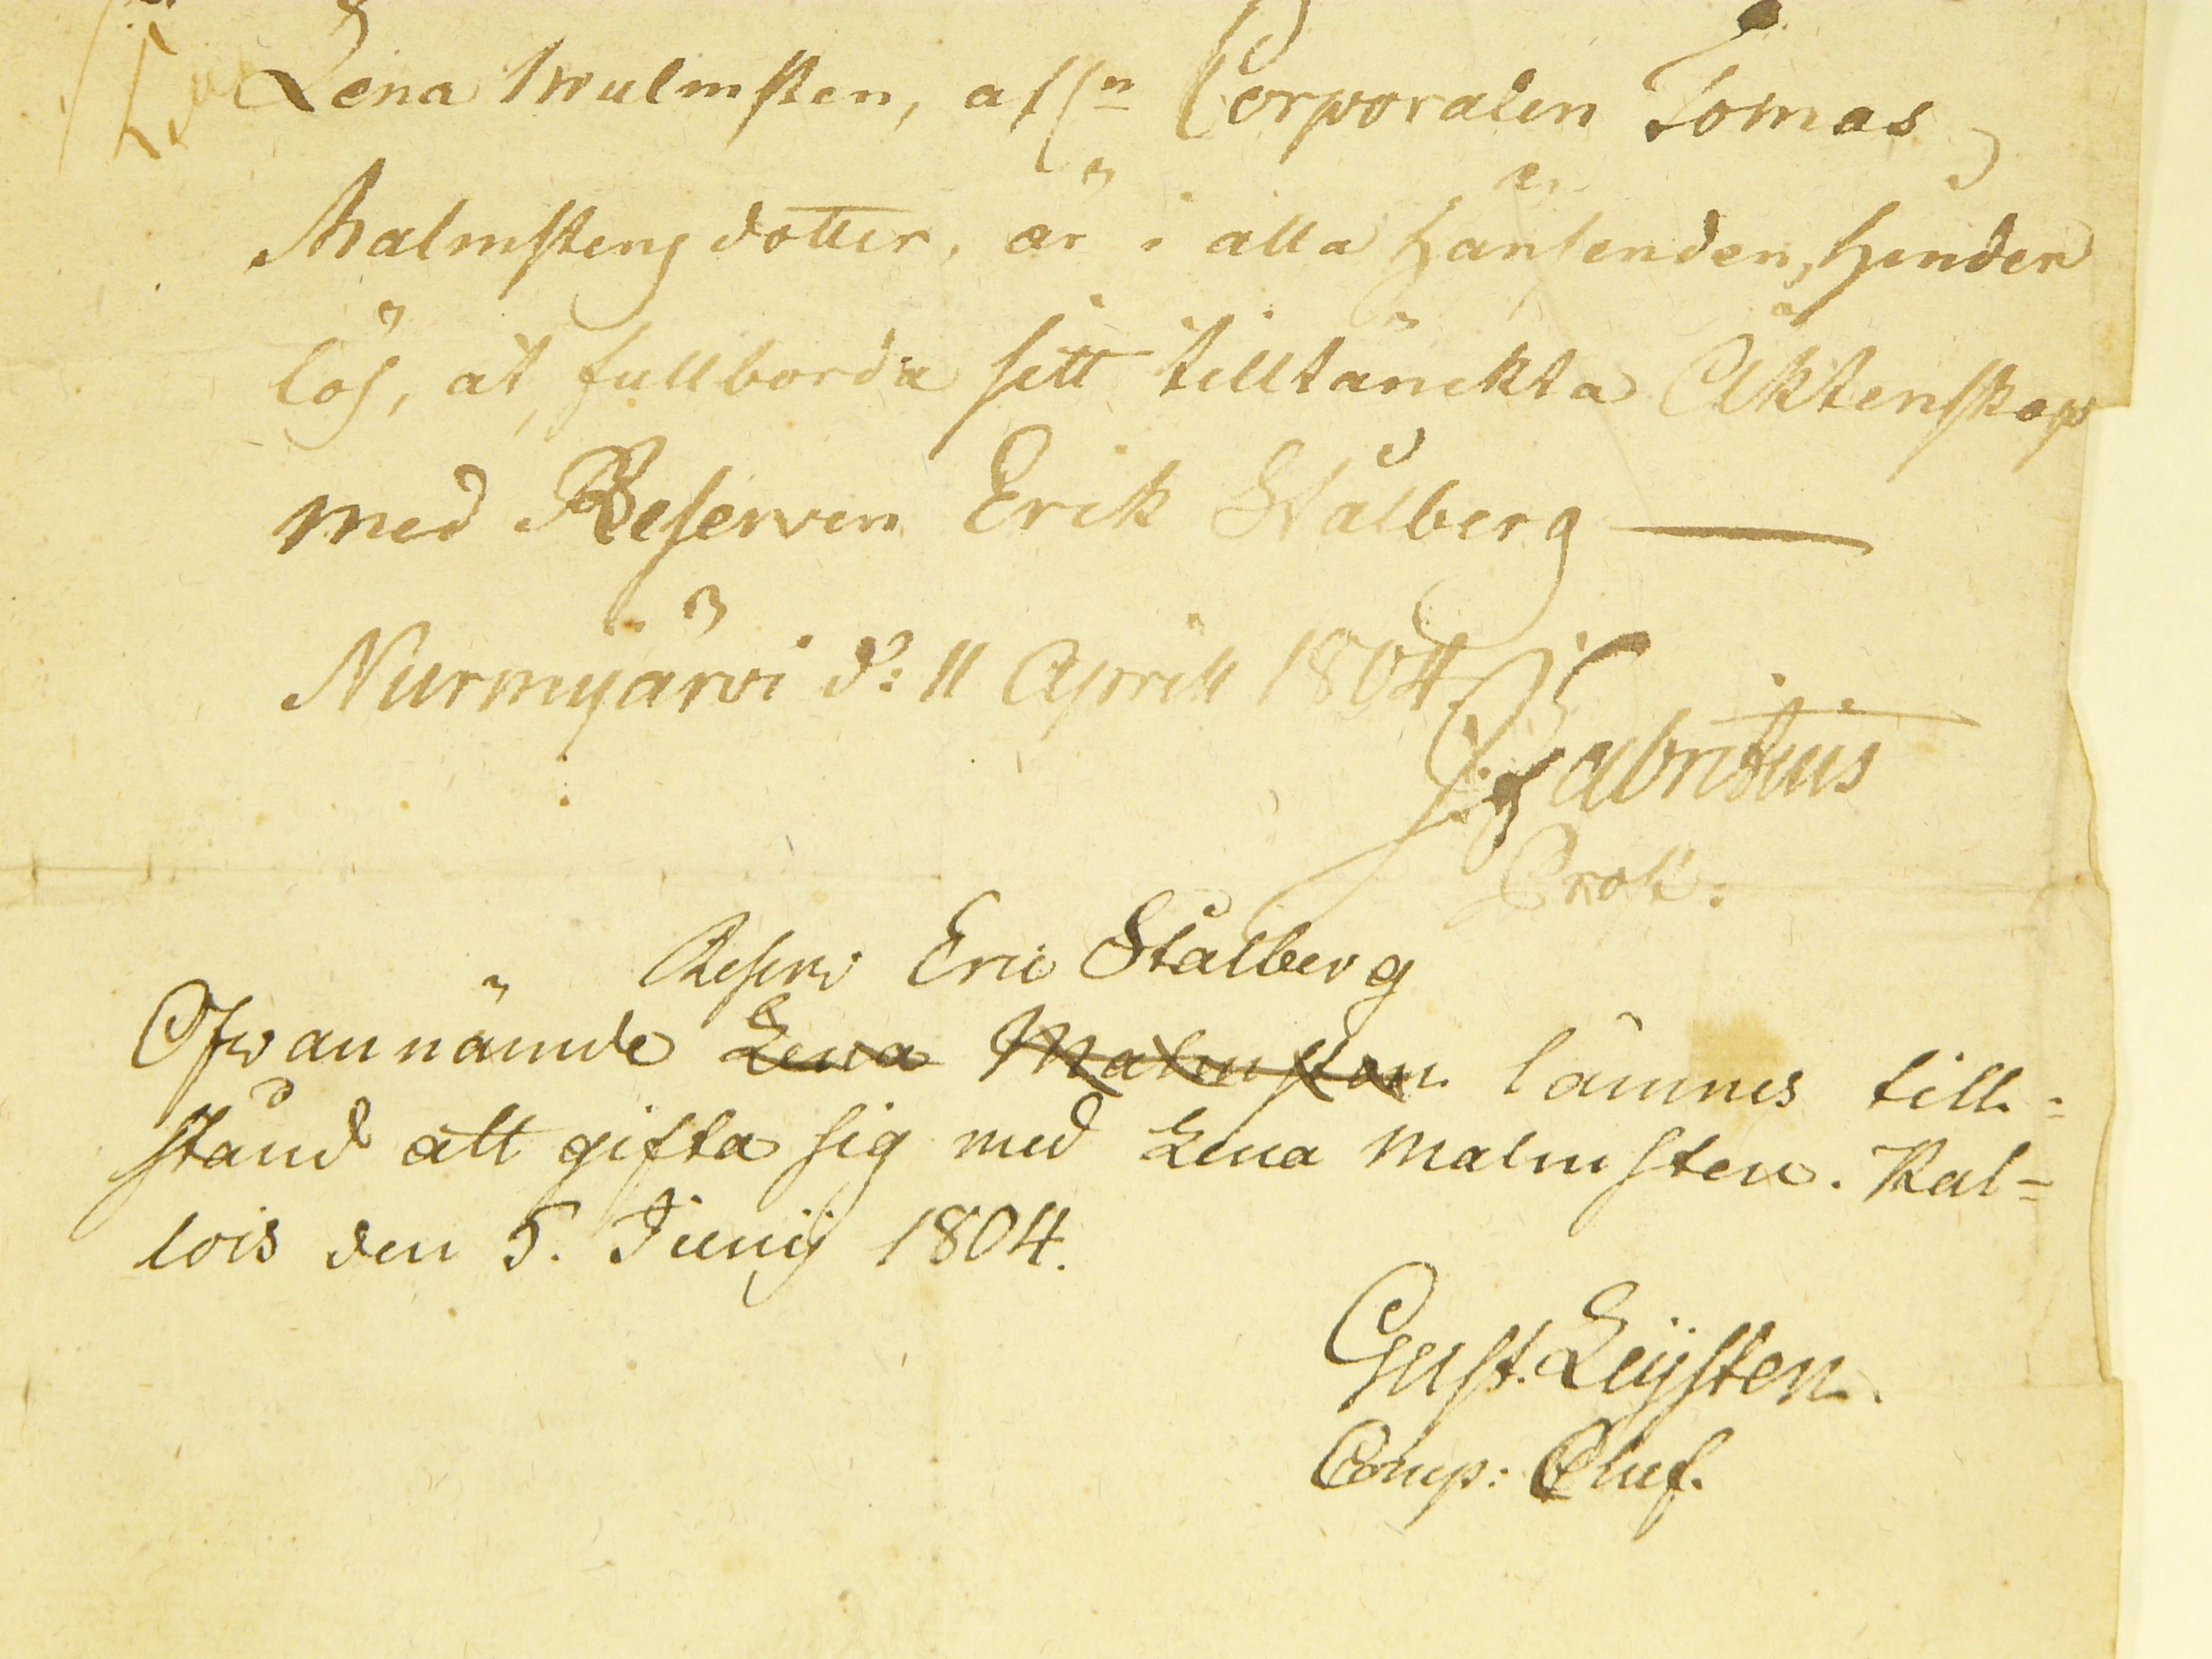 Lena Malmsten, aff:n Corporalen Tomas
Malmstens dotter, är i alla hänseenden, hinder
lös, at fullborda sitt tilltänckta Äktenskap
med Reserven Erik Stålberg —
Nurmijärvi d: 11 April 1804
J. Fabritius
Reserv Eric Stålberg
Ofwannämde Lena Malmsten lämnes till=
stånd att gifta sig med Lena Malmsten. Kal=
lois den 5. Junij 1804.
Gust. Leijsten.
Comp: Chef.